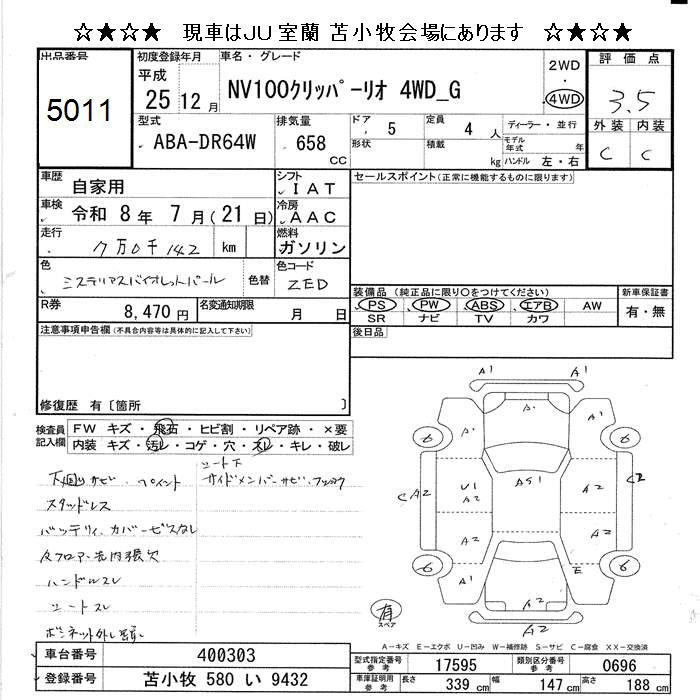 ☆★☆★ 現車はJU室蘭 苫小牧会場にあります ☆★☆★
出品番号
5011
初度登録年月
平成
25 12 月
車名・グレード
NV100クリッパーリオ 4WD_G
2WD
・
4WD
評価点
3.5
外装 内装
C C
型式
ABA-DR64W
排気量
658
cc
ドア 5
形状
定員 4 人
積載 kg
ディーラー・並行
モデル年式 年
ハンドル 左・右
車歴
自家用
車検
令和 8 年 7 月(21 日)
走行
7万0千142 km
色
ミステリアスバイオレットパール
色替
シフト
IAT
冷房
AAC
燃料
ガソリン
色コード
ZED
R券
8,470 円
名変通知期限
月 日
セールスポイント(正常に機能するものに限ります)
装備品 (純正品に限り○をつけてください)
PS PW ABS エアB AW
SR ナビ TV カワ
新車保証書
有・無
後日品
注意事項申告欄(不具合内容等は具体的に記入して下さい)
修復歴 有〔箇所 〕
検査員記入欄
FW キズ・飛石・ヒビ割・リペア跡・×要
内装 キズ・汚レ・コゲ・穴・スレ・キレ・破レ
下廻りサビ、ペイント
スタッドレス
バッテリィカバービスなし
ハンドルスレ
シートスレ
シート下
サイドメンバーサビ
A1 A1
A1 A1
6 6
C A2 U1 A2 AS1 A2 C2
A2 A2
6 6
A1 A2 E
A2
有
スペア
A-キズ E-エクボ U-凹み W-補修跡 S-サビ C-腐食 XX-交換済
車台番号 400303
登録番号 苫小牧 580 い 9432
型式指定番号
参考
17595
類別区分番号
参考
0696
車庫証明用
参考
長さ 339 cm 幅 147 cm 高さ 188 cm